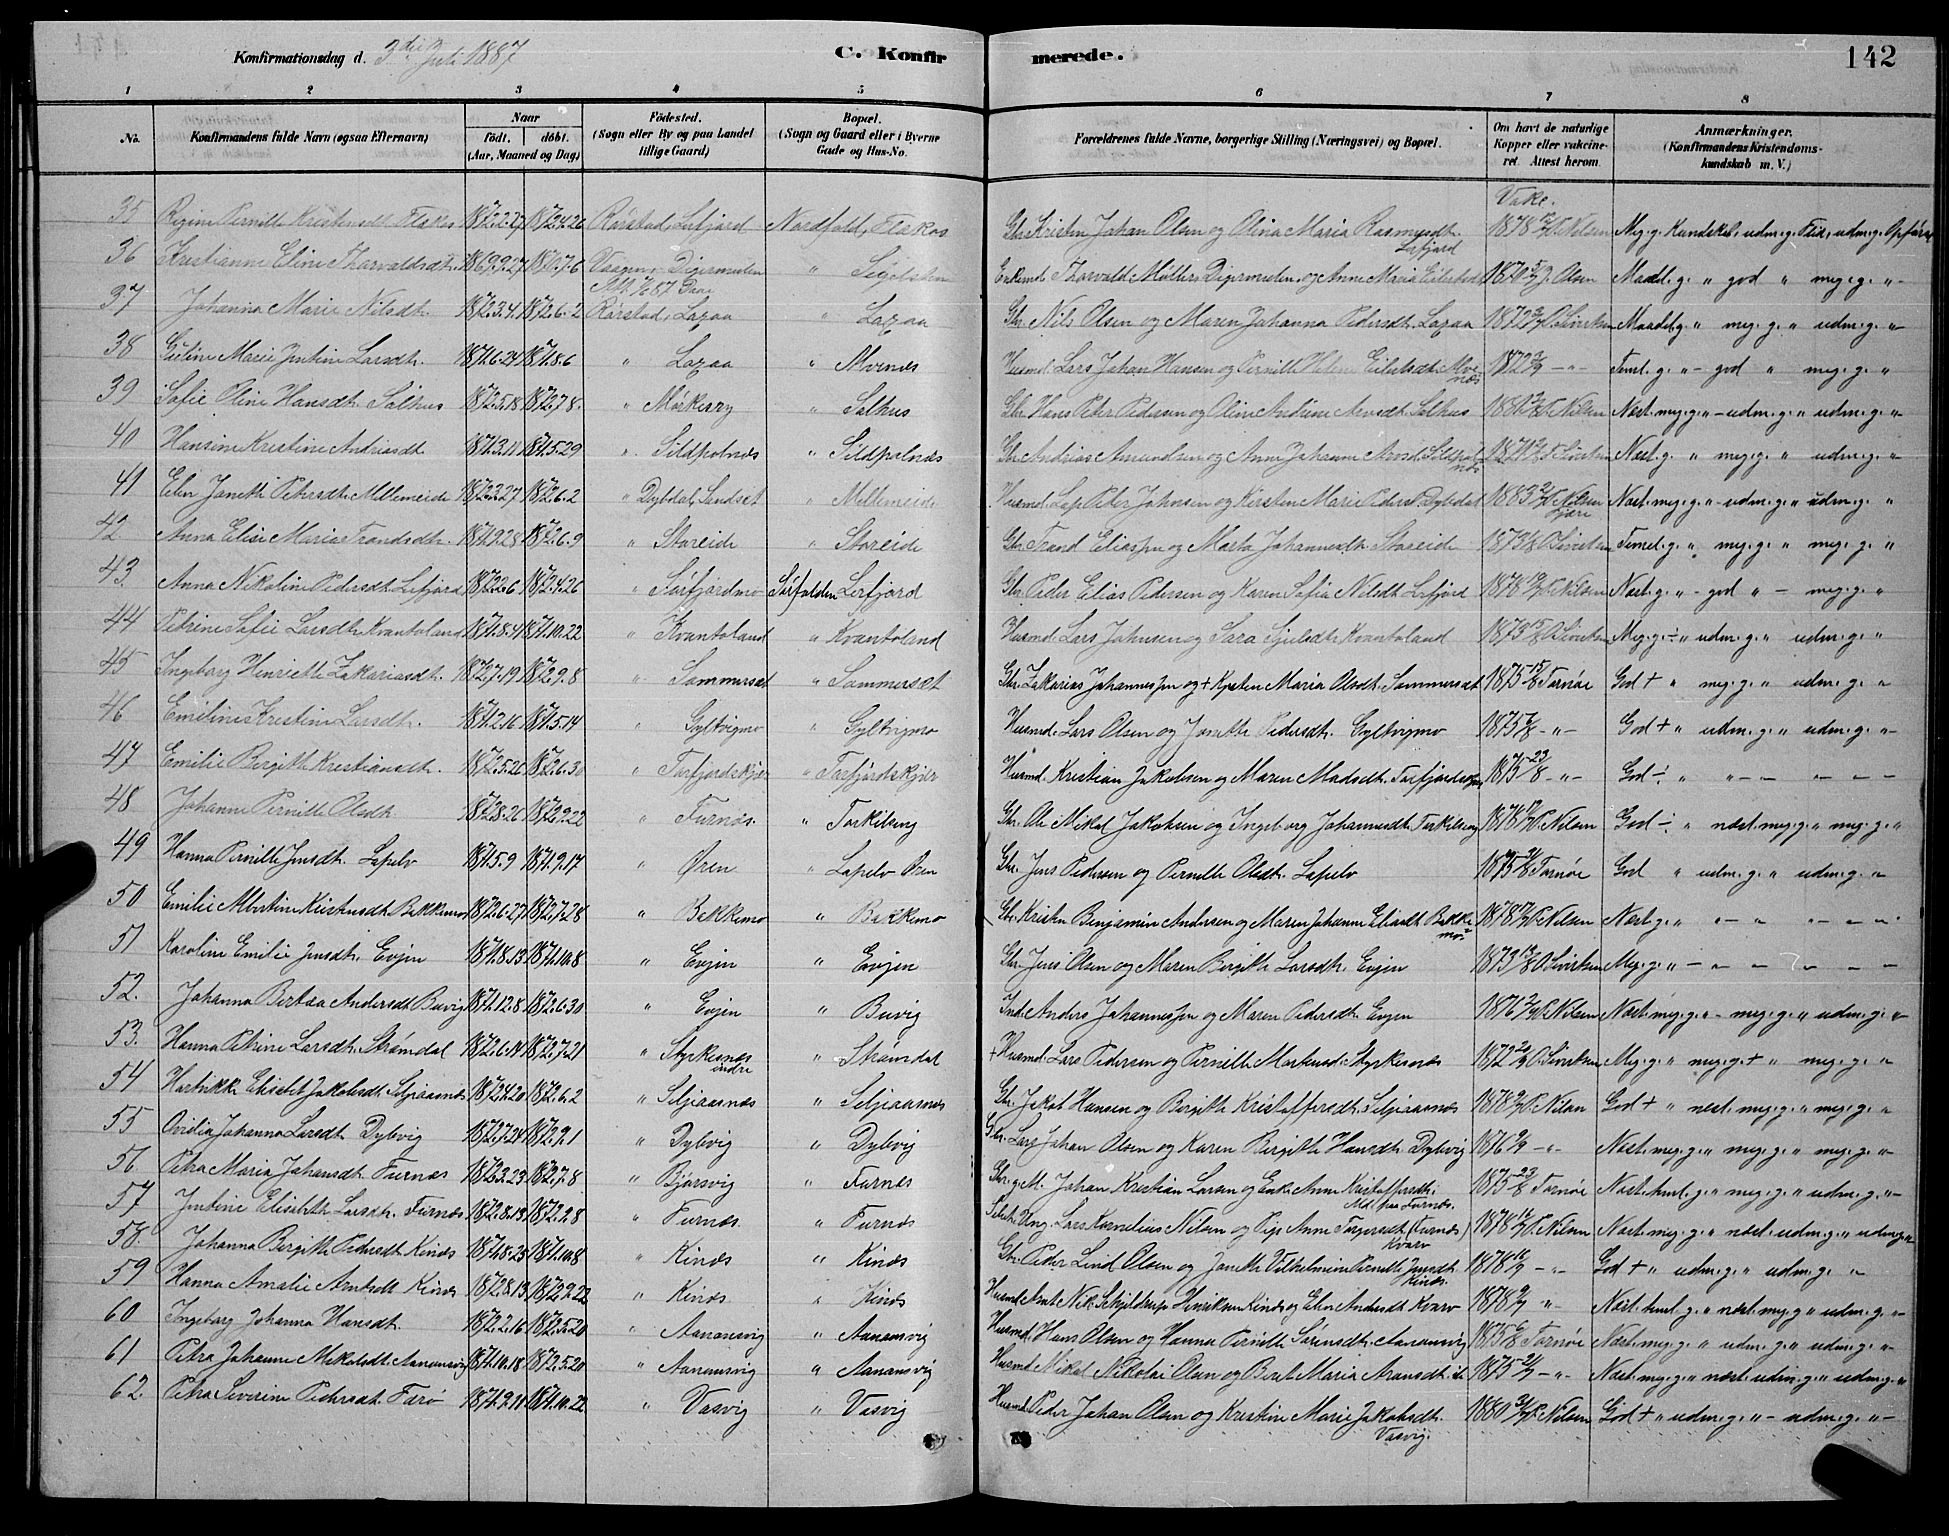 Konfirmationsdag d. 3die Juli 1887
C. Konfirmerede.
142
1 2 3 4 5 6 7 8
No. Konfirmandens fulde Navn (ogsaa Efternavn) Naar født. døbt. (Aar, Maaned og Dag) Fødested. (Sogn eller By og paa Landet tillige Gaard) Bopæl. (Sogn og Gaard eller i Byerne Gade og Hus-No. Forældrenes fulde Navne, borgerlige Stilling (Næringsvei) og Bopæl. Om havt de naturlige Kopper eller vakcineret. Attest herom. Anmærkninger. (Konfirmandens Kristendomskundskab m. V.)
Vakc.
35 Regine Pernille Kristensdt. Flakas 1872.2.27 1872.4.26 Rørstad, Leifjord Nordfold, Flakas Gbr. Kristen Johan Olsen og Olina Maria Rasmusdt. Leifjord 1878 P. Nilsen Meg. g. Kundskab, udm. g. Flid, udm. g. Opførsel
36 Kristianne Eline Thorvaldsdt. 1869.9.27 1870.7.6 Vaagan, Digermulen " Sigelsten Thorvald Møller, Digermulen, og Anne Maria Eilertsdt. 1870 J. Olsen Maadel. g. " god " meg. g. "
37 Johanna Marie Nilsdt. 1872.3.4 1872.6.2 Rørstad, Laxaa " Laxaa Gbr. Nils Olsen og Maren Johanna Pedersdt. Laxaa 1872 O. Sivertsen Maadel. g. " meg. g. " udm. g. "
38 Marie Justine Larsdt. 1871.6.24 1871.8.6 " Laxaa " Alvenæs Husmd. Lars Johan Hansen og Pernille Helene Eilertsdt. Alvenæs 1872 - " - Teml. g. " - god " meg. g. "
39 Sofie Oline Hansdt. Salhus 1872.5.18 1872.7.8. " Mørkesry " Salhus Gbr. Hans Peter Pedersen og Oline Andrine Arnsdt. Salhus 1881 P. Nilsen Næst. meg. g. " - udm. g. " udm. g. "
40 Hansine Kristine Andreasdt. 1871.3.11 1871.5.29 " Sildpolnæs " Sildpolnæs Gbr. Andreas Amundsen og Anne Johanne Arnsdt. Sildpolnæs 1871 O. Sivertsen Næst. g. " meg. g. " udm. g. "
41 Elen Janette Petersdt. Mellemeide 1872.2.27 1872.6.2 " Dybdal, Sandset " Mellemeide Husmd. Lap Peter Johnsen og Kirsten Marie Pedersdt. Dybdal 1883 P. Nilsen Næst. meg. g. " - udm. g. " udm. g. "
42 Anna Elise Maria Trondsdt. 1871.9.28 1872.6.9 " Storeide " Storeide Gbr. Trond Eliassen og Marta Johannesdt. Storeide 1873 O. Sivertsen Temel. g. " meg. g. " meg. g. "
43. Anna Nikoline Pedersdt. Leifjord 1872.2.6 1872.4.26 " Sørfjordmo Sørfolden Leifjord Gbr. Peder Elias Pedersen og Karen Sofia Nilsdt. Leifjord 1878 P. Nilsen Næst. g. " - god " - meg. g. "
44 Petrine Sofie Larsdt. Kvantoland 1871.8.4 1871.10.22 " Kvantoland " Kvantoland Husmd. Lars Johnsen og Sara Sjulsdt. Kvantoland 1873 O. Sivertsen Meg. g. ÷ " udm. g. " udm. g. "
45 Ingeborg Henriette Zakariasdt. 1872.7.19 1872.9.8 " Sommerset " Sommerset Gbr. Zakarias Johannessen og + Kirsten Maria Olsdt. Sommerset 1875 15/8 Tornøe God + " meg. g. " udm. g. "
46 Emiline Kristine Larsdt. 1871.2.16 1871.5.14 " Gyltvigmo " Gyltvigmo Husmd. Lars Olsen og Janette Pedersdt. Gyltvigmo 1875 - " - God + " udm. g. " udm. g. "
47 Emilie Birgitte Kristiansdt. 1872.5.26 1872.6.30 " Tørfjordskjær " Tørfjordskjær Husmd. Kristian Jakobsen og Maren Madsdt. Tørfjordskjær 1875 23/8 - " - God ÷ " " - - " - -
48 Johanne Pernille Olsdt. 1872.8.26 1872.9.22 " Furnæs. " Torkileng Gbr. Ole Mikal Jakobsen og Ingeborg Johannesdt. Torkileng 1878 P. Nilsen God ÷ " næst. meg. g. " meg. g. "
49 Hanna Pernille Jensdt. Lapelv 1871.5.9 1871.9.17 " Øren " Lapelv Øren Gbr. Jens Pedersen og Pernille Olsdt. Lapelv 1875 Tornøe God " udm. g. " udm. g. "
50 Emilie Albertine Kristensdt. Bakkemo 1872.6.27 1872.7.28 " Bakkemo " Bakkemo Gbr. Kristen Benjamin Andersen og Maren Johanne Eliasdt. Bakkemo. 1878 P. Nilsen Næst. g. " " - " " - "
51 Karoline Emilie Jensdt. Evjen 1871.8.13 1871.10.8 " Evjen " Evjen Gbr. Jens Olsen og Maren Birgitte Larsdt. Evjen 1873 O. Sivertsen Meg. g. " - " - " - -
52. Johanna Andersdt. Buvig 1871.12.8 1872.6.30 " Evjen " Buvig Ind. Anders Johannessen og Maren Pedersdt. Evjen 1876 P. Nilsen Næst. meg. g. " - meg. g. " udm. g. "
53. Hanna Petrine Larsdt. Strømdal 1872.6.14 1872.7.21 " Styrkesnæs indre " Strømdal + Husmd. Lars Pedersen og Pernille Mortensdt. Styrkesnæs 1872 O. Sivertsen Meg. g. " meg. g. + " udm. g. "
54 Elisabet Jakobsdt. Seljeaasnæs 1872.4.20 1872.6.2 " Seljeaasnæs " Seljeaasnæs Gbr. Jakob Hansen og Birgitte Kristoffersdt. Seljeaasnæs 1878 P. Nilsen God + " næst. meg. g. " meg. g. "
55 Ovidia Johanna Larsdt. Dybvig 1872.7.24 1872.9.1 " Dybvig " Dybvig Gbr. Lars Johan Olsen og Karen Birgitte Hansdt. Dybvig 1876 - " - Næst. meg. g. " meg. g. " meg. g. "
56. Petra Maria Johansdt. Furnæs 1872.3.23 1872.7.8 " Bjørsvig " Furnæs Johan Kristian Larsen og Enke Anne Kristoffersdt. Furnæs. 1875 23/8 Tornøe Næst. teml. g. " meg. g. " udm. g. "
57 Justine Elisabeth Larsdt. Furnæs 1872.8.13 " Furnæs. " Furnæs Ung. Lars Kornelius Nilsen og Pige Anne Torgersdt. (Furnæs) Kvarv 1878 P. Nilsen Næst. meg. g. " næst. udm. g. " udm. g. "
58. Johanna Birgitte Pedersdt. Kinæs 1871.8.23 1871.10.8 " Kinæs " Kinæs Gbr. Peder Lind Olsen og Janette Vilhelmine Pernille Jensdt. Kinæs. 1878 - " - God + " udm. g. " udm. g. "
59 Hanna Amalie Arntsdt. Kinæs 1872.8.13 1872.9.22 " Kinæs " Kinæs Husmd. Arnt Nik. Schjeldrup Henriksen Kinæs og Elen Andersdt. Kvarv 1878 " Næst. teml. g. " næst. meg. g. " udm. g. "
60 Ingeborg Johanna Hansdt. 1872.2.16 1872.5.20 " Aanonsvig " Aanonsvig Husmd. Hans Olsen og Hanna Pernille Sørensdt. Aanonsvig 1875 Tornøe Næst. meg. g. " udm. g. " udm. g. "
61 Petra Johanne Mikalsdt. Aanonsvig 1871.10.18 1872.5.20 " Aanonsvig " Aanonsvig Husmd. Mikal Nikolai Olsen og Beret Maria Aronsdt. ib. 1875 - " - Næst. meg. g. " næst. udm. g. " udm. g. "
62. Petra Severine Pedersdt. Farø 1871.9.11 1871.10.22 " Vasvig " Vasvig Husmd. Peder Johan Olsen og Kristine Marie Jakobsdt. Vasvig. 1880 P. Nilsen God + " udm. g. " - udm. g. "